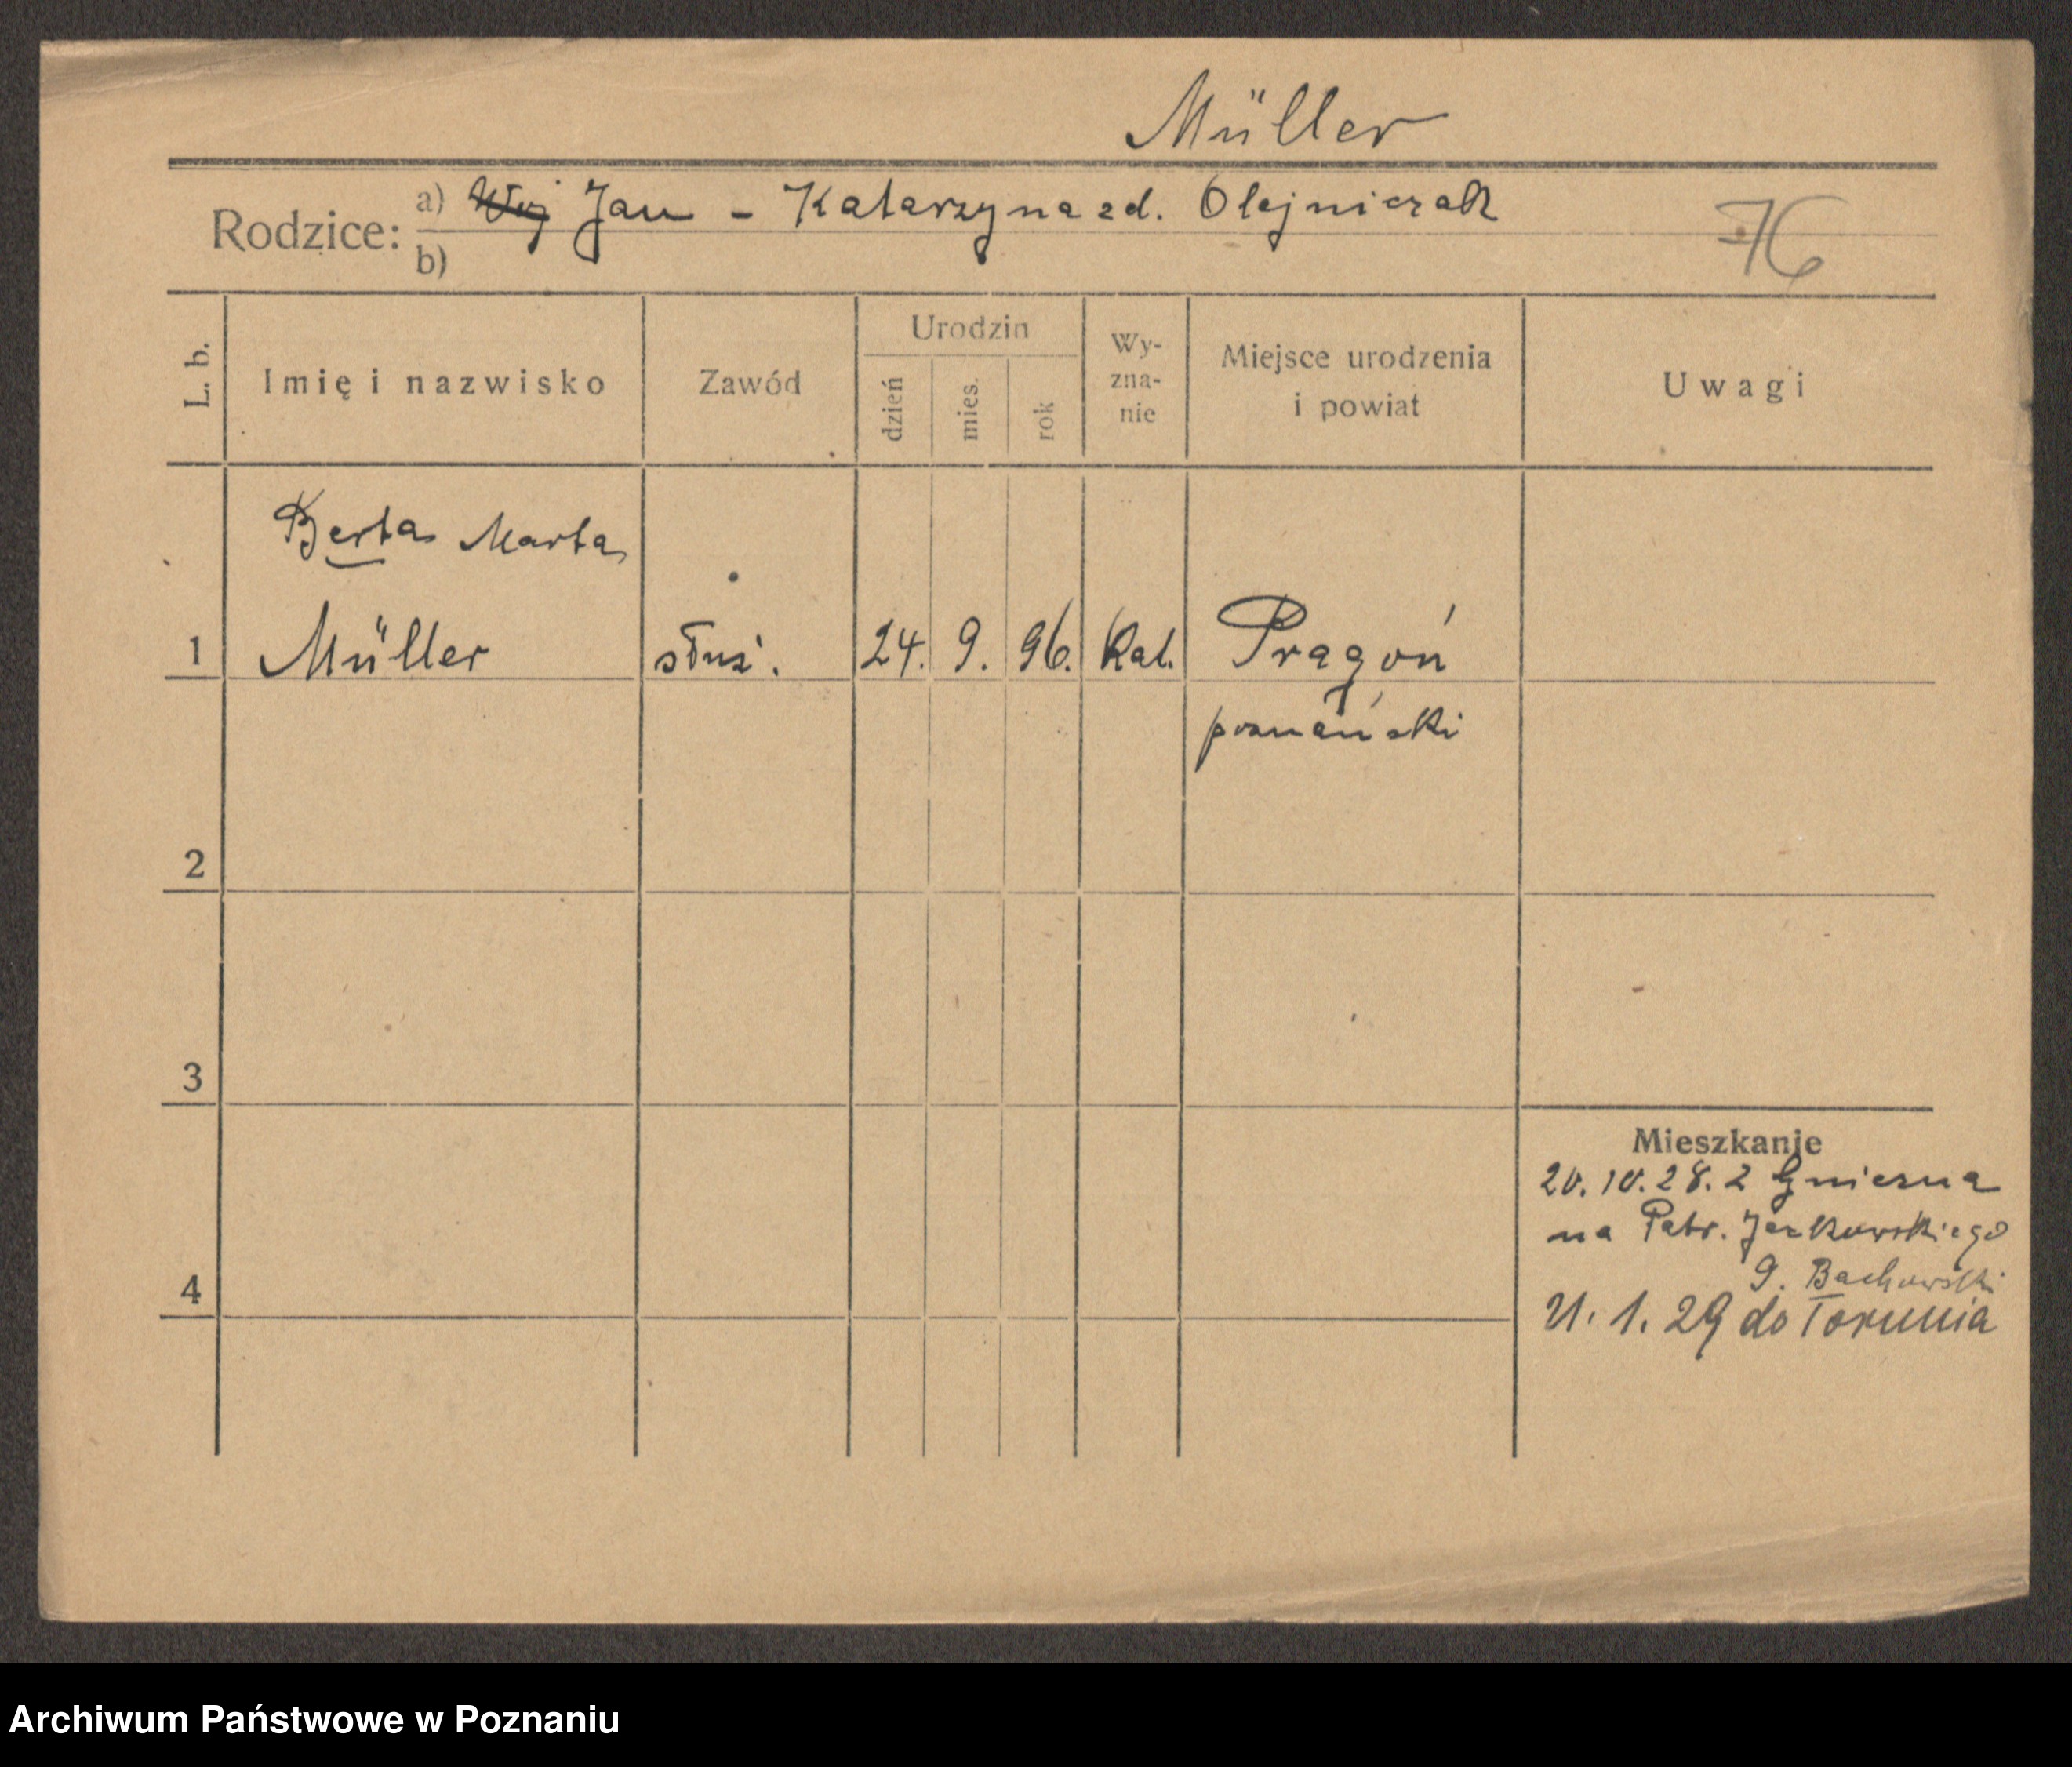 Müller
Rodzice: a) Woj Jan - Katarzyna zd. Olejniczak
b)
76
L. b.
Imię i nazwisko
Zawód
Urodzin
dzień
mies.
rok
Wy-
zna-
nie
Miejsce urodzenia
i powiat
Uwagi
Berta Marta
1 Müller służ. 24. 9. 96. Kat.
poznański
2
3
4
Mieszkanie
20.10.28. z Gniezna
na Patr. Jackowskiego
9. Bachowski
21. 1. 29 do Torunia
Archiwum Państwowe w Poznaniu